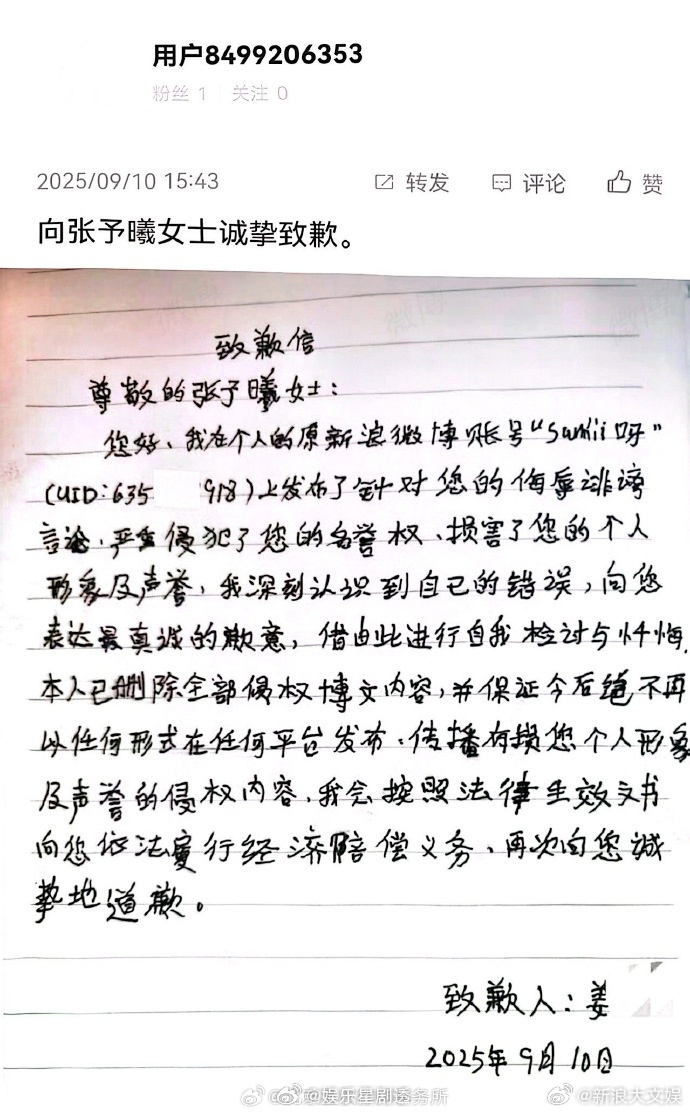 用户8499206353
粉丝 1 关注 0
2025/09/10 15:43 转发 评论 赞
向张予曦女士诚挚致歉。
致歉信
尊敬的张予曦女士：
您好、我在个人的原新浪微博账号“Sunkii呀”
(UID:635 918)上发布了针对您的侮辱诽谤
言论、严重侵犯了您的名誉权、损害了您的个人
形象及声誉，我深刻认识到自己的错误，向您
表达最真诚的歉意，借由此进行自我检讨与忏悔，
本人已删除全部侵权博文内容，并保证今后绝不再
以任何形式在任何平台发布、传播有损您个人形象
及声誉的侵权内容，我会按照法律生效文书
向您依法履行经济赔偿义务、再次向您诚
挚地道歉。
致歉人：姜
2025年9月10日
@娱乐星剧透务所 @新浪大文娱